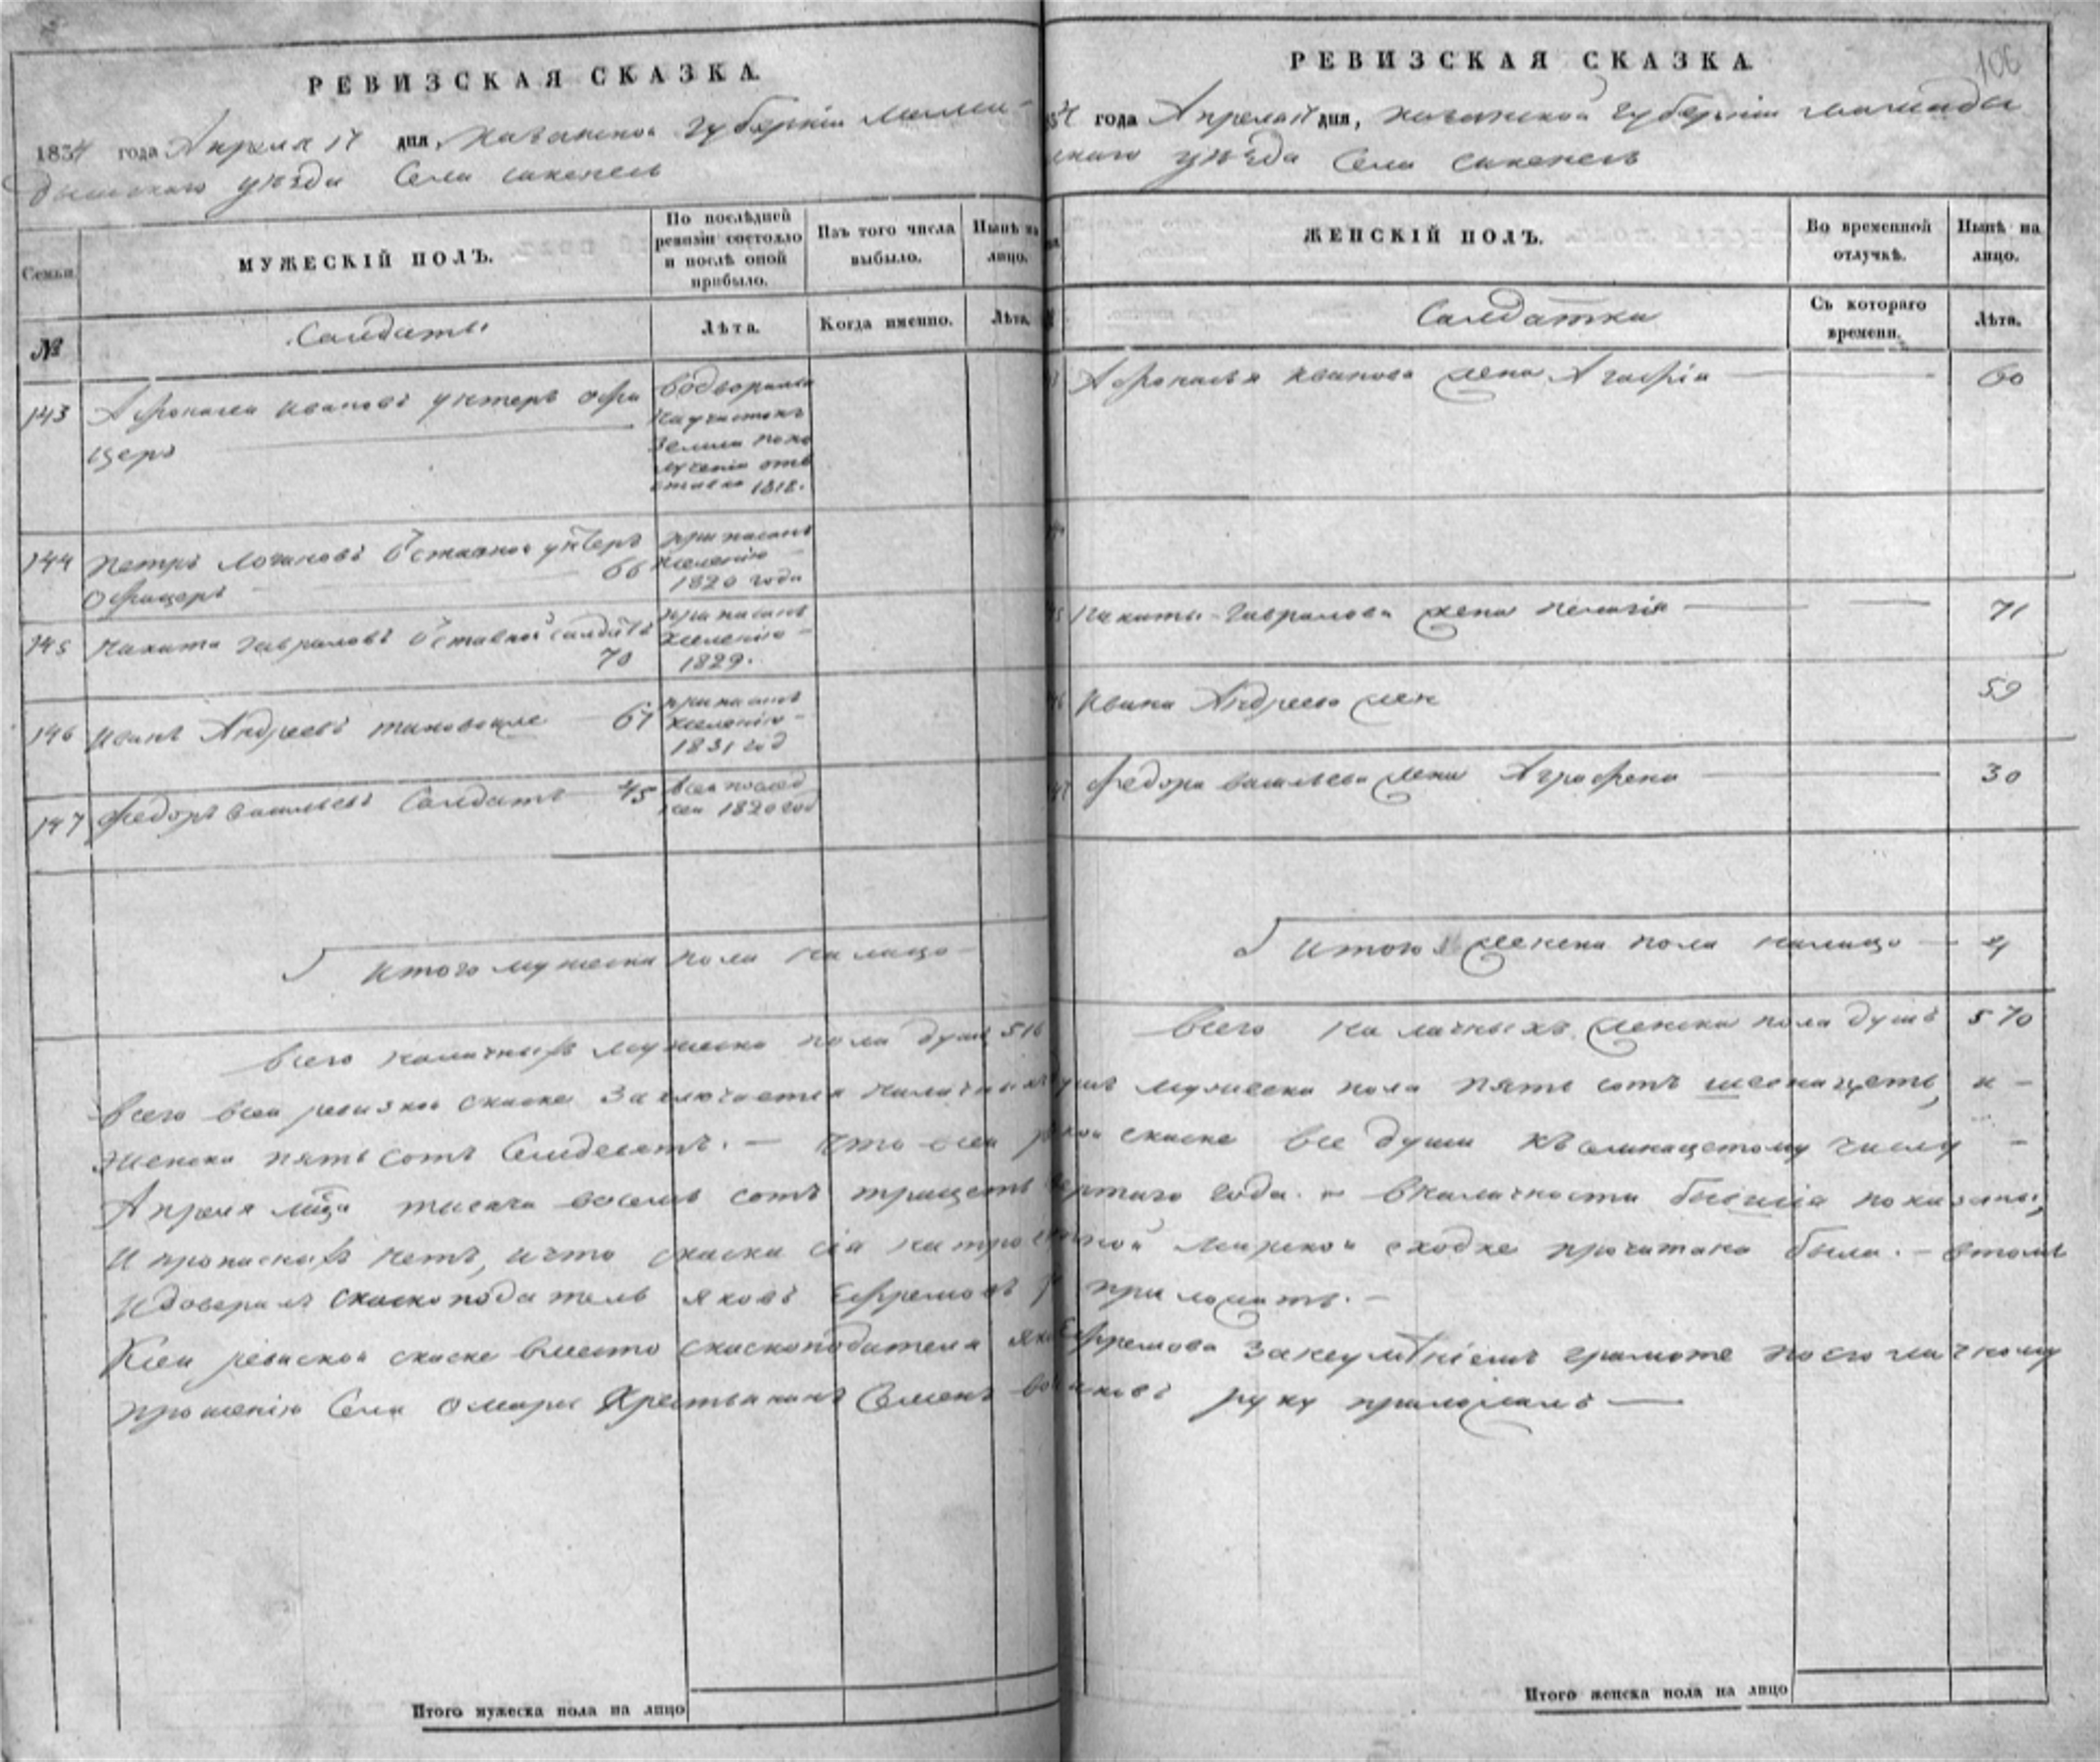 РЕВИЗСКАЯ СКАЗКА
1834 года Апреля 17 дня, Казанской губернии Мамы-
дышскаго уезда Села
Семьи
МУЖЕСКІЙ ПОЛЪ.
По послѣдней ревизіи состояло и послѣ оной прибыло.
Изъ того числа выбыло.
Нынѣ на лицо.
№
Салдаты
Лѣта.
Когда именно.
Лѣта.
143 Афонасеи Ивановъ унтеръ офи
церъ
водворилса
на участокъ
земли по по
лученіи отъ
ставки 1818.
144 Петръ Логановъ отставной унтеръ
офицеръ 66
приписанъ
кселенію
1820 года
145 Никита Гавриловъ отставной салдатъ
70
приписанъ
кселенію
1829.
146 Иванъ Андреевъ таковои же 67
приписанъ
кселенію
1831 год
147 Федоръ Васильевъ Салдатъ 45
1820 год
Итого мужеска пола на лицо
Всего наличныхъ мужеска пола душъ 516
РЕВИЗСКАЯ СКАЗКА
106
34 года Апреля 17 дня, Казанской губернии Мамады
скаго уезда Села
ЖЕНСКІЙ ПОЛЪ.
Во временной отлучкѣ.
Нынѣ на лицо.
Салдатки
Съ котораго времени.
Лѣта.
Афонасья Иванова жена Агафія 60
Никиты Гаврилова жена Пелагія 71
Ивана Андреева жен 59
Федора Васильева жена Аграфена 30
Итого женска пола налицо 4
Всего наличныхъ женска пола душъ 570
Всего всеи ревизкои скаске заключается наличныхъ душъ мужеска пола пять сотъ шеснацеть, и
Женска пять сотъ Семдесетъ. – Что всеи скаске все души къ семнацетому числу
Апреля мца тысяча восемь сотъ трицеть четвертаго года вналичности бывшія показаны,
И прописныхъ нетъ, и что скаска сія на мирской сходке прочитана была. – втомъ
И доверилъ скаскоподатель Яковъ Ефремовъ приложить. –
Ксеи ревискои скаске вместо скаскоподателя Якова Ефремова за неуменіемъ грамоте по его личному
прошенію Села Омары Крестьянинъ Семенъ руку приложилъ
Итого мужеска пола на лицо
Итого женска пола на лицо